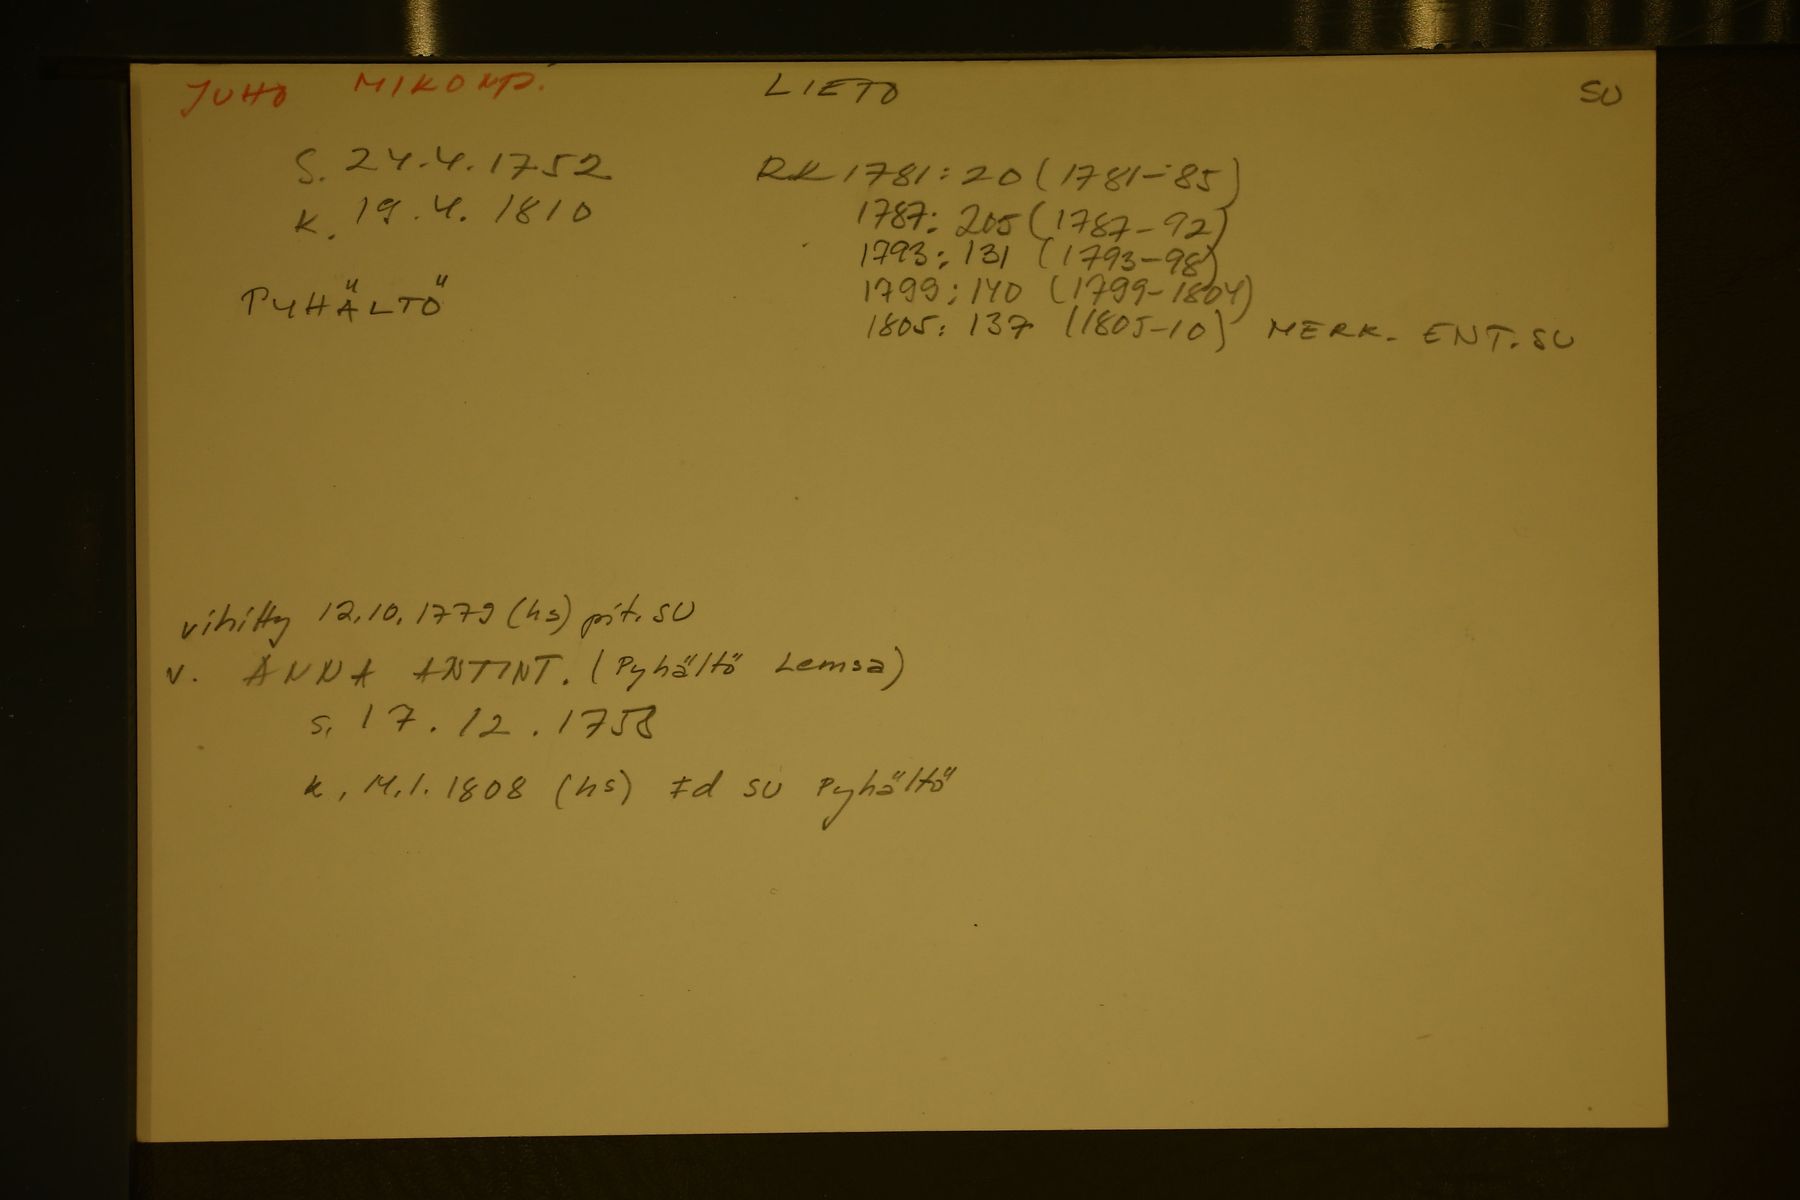 JUHO MIKONP. LIETO SU
S. 24.4.1752
k. 19.4.1810
PYHÄLTÖ
RK 1781: 20 (1781-85)
1787: 205 (1787-92)
1793: 131 (1793-98)
1799: 140 (1799-1804)
1805: 137 (1805-10) MERK. ENT. SU
vihitty 12.10.1779 (hs) pit. SU
v. ANNA ANTINT. (Pyhältö Lemsa)
s. 17.12.1758
k. 14.1.1808 (hs) Id SU Pyhältö